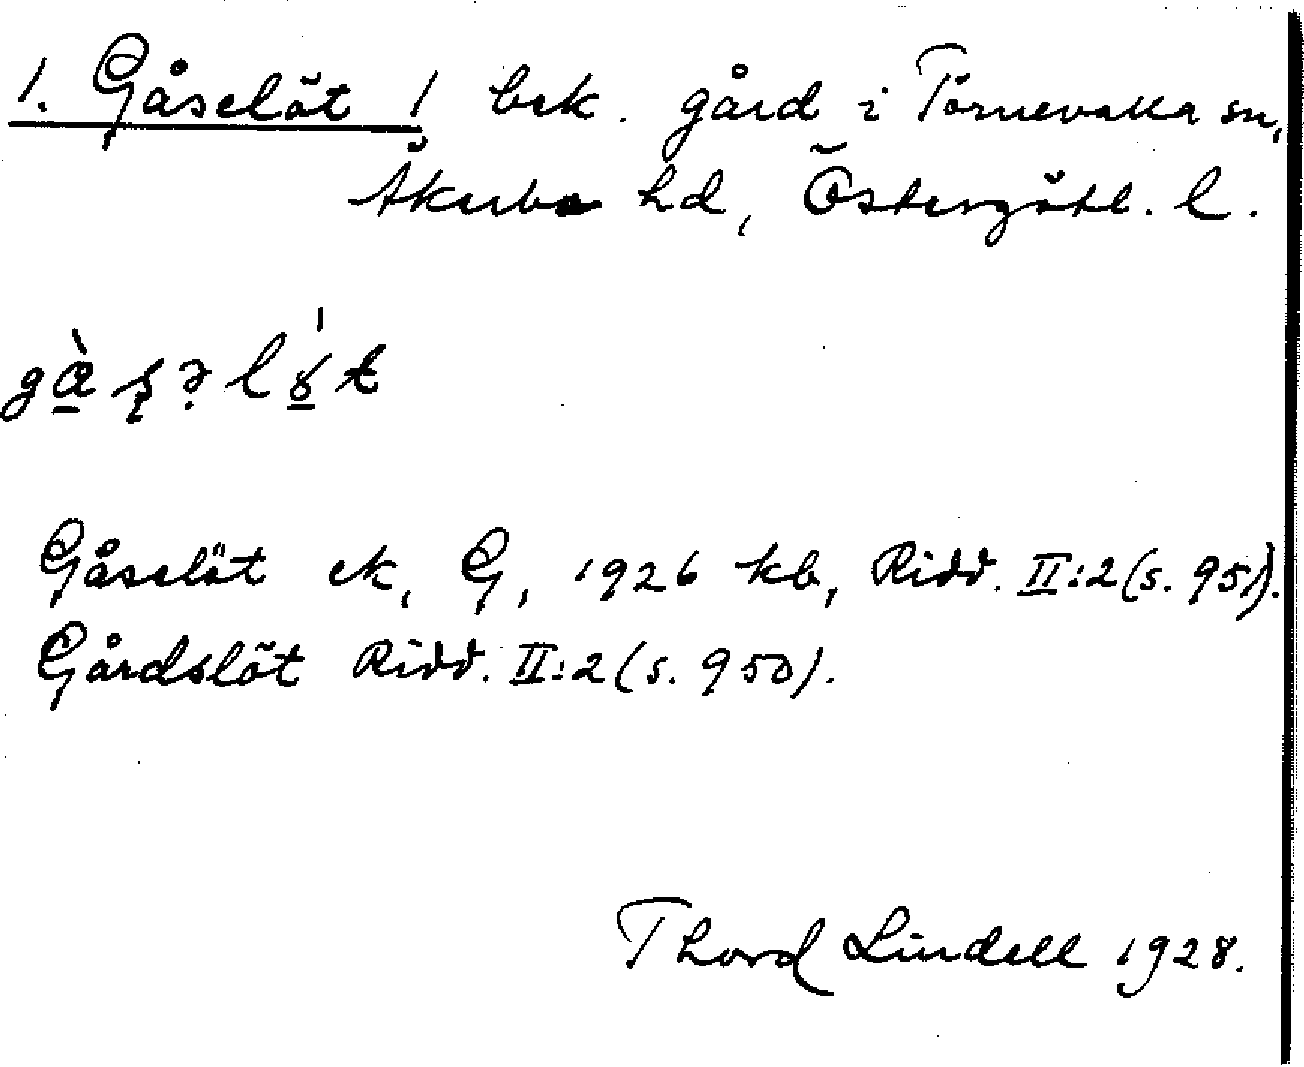 1. Gåselöt 1 bek. gård i Törnevalla sn,
Åkerbo hd, Östergötl. l.
Gåselöt ek, G, 1926 kb, Ridd. II:2 (s. 951).
Gårdslöt Ridd. II:2 (s. 950).
Thord Lindell 1928.